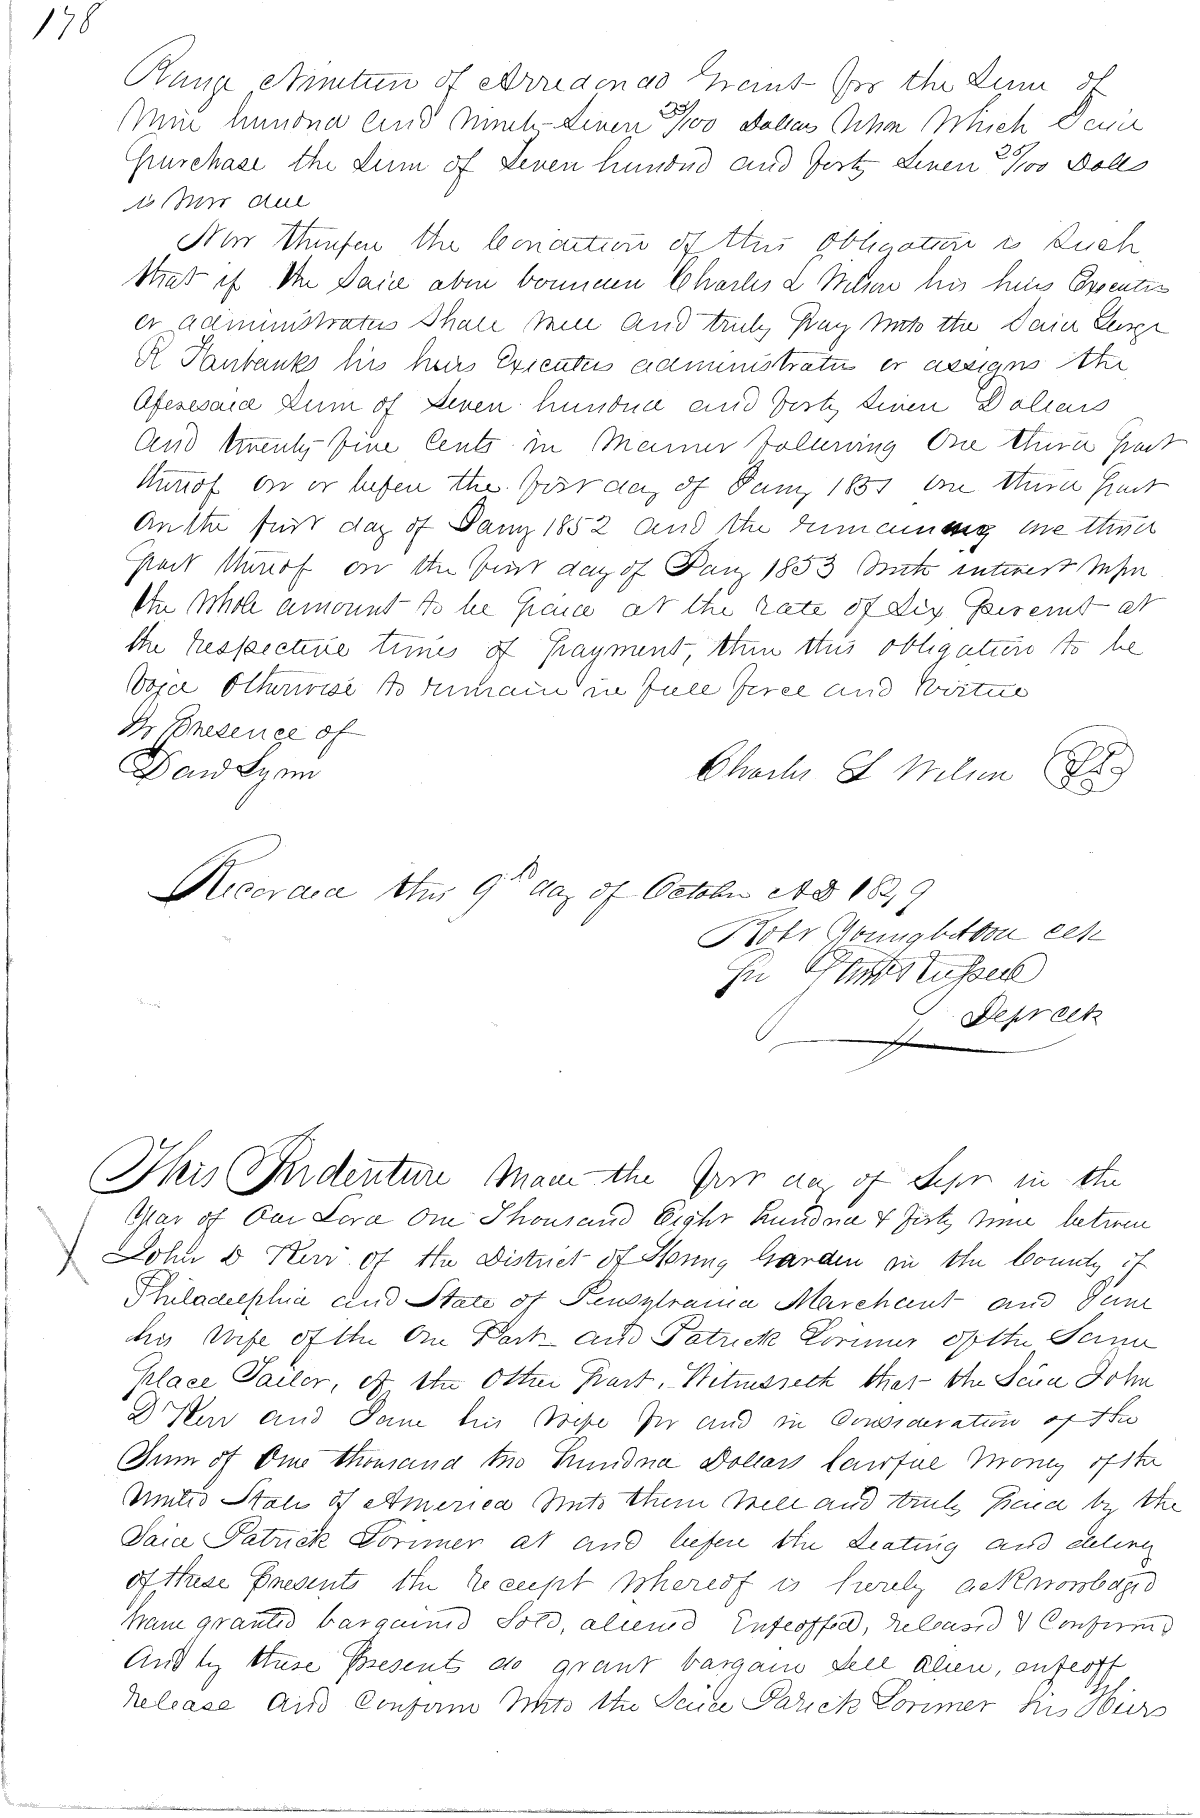 178
Range Nineteen of Arredondo Grant for the Sum of
Nine hundred and Ninety-Seven 25/100 Dollars Upon Which Said
Purchase the Sum of Seven hundred and forty Seven 25/100 Dolls
is Now due
Now therefore the Condition of this Obligation is Such
that if the Said above bounden Charles L Wilson his heirs Executors
or administrators Shall Well and truly Pay Unto the Said George
R Fairbanks his heirs Executors administrators or assigns the
Aforesaid Sum of Seven hundred and forty Seven Dollars
And twenty-five Cents in Manner following One third Part
thereof on or before the first day of Jany 1851 one third Part
on the first day of Jany 1852 and the remaining one third
Part thereof on the first day of Jany 1853 With interest Upon
the Whole amount to be Paid at the rate of Six Percent at
the respective times of Payment, then this obligation to be
Void Otherwise to remain in full force and Virtue
In Presence of
David Lynn
Charles L Wilson
Recorded this 9th day of October AD 1849
Robt Clk
Pr
Dep Clk
This Indenture Made the first day of Sept in the
Year of Our Lord One Thousand Eight hundred & forty nine between
John D Kerr of the District of Spring Garden in the County of
Philadelphia and State of Pensylvania Merchant and Jane
his Wife of the One Part and Patrick Lorimer of the Same
Place Tailor, of the Other Part. Witnesseth that the Said John
D Kerr and Jane his Wife for and in Consideration of the
Sum of One thousand two hundred Dollars lawful Money of the
United States of America Unto them Well and truly Paid by the
Said Patrick Lorimer at and before the Sealing and delivery
of these Presents the receipt Whereof is hereby acknowledged
have granted bargained Sold, aliened Enfeoffed, released & Confirmed
And by these Presents do grant bargain Sell alien, enfeoff
release and Confirm Unto the Said Patrick Lorimer his Heirs